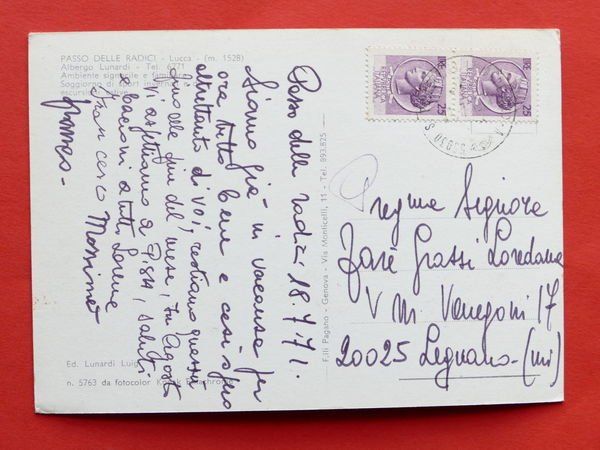 PASSO DELLE RADICI - Lucca - (m. 1528)
Albergo Lunardi - Tel. 6271
Ambiente signorile e familiare
Soggiorno di sport
escursioni
Passo delle radici 18.7.71.
Siamo già in vacanza per
ora tutto bene e così spero
altrettanto di voi, restiamo quassù
fino alla fine del mese, in Agosto
Vi aspettiamo a Pisa, saluti
e bacioni a tutti, Lorena
Francesco Massimo
Romeo -
Ed. Lunardi Luigi
n. 5763 da fotocolor Kodak Ektachrome
F.lli Pagano - Genova - Via Monticelli, 11 - Tel. 893.825
25
25
Pregma Signora
José Grassi Loredana
V M. Venegoni 17
20025 Legnano - (mi)